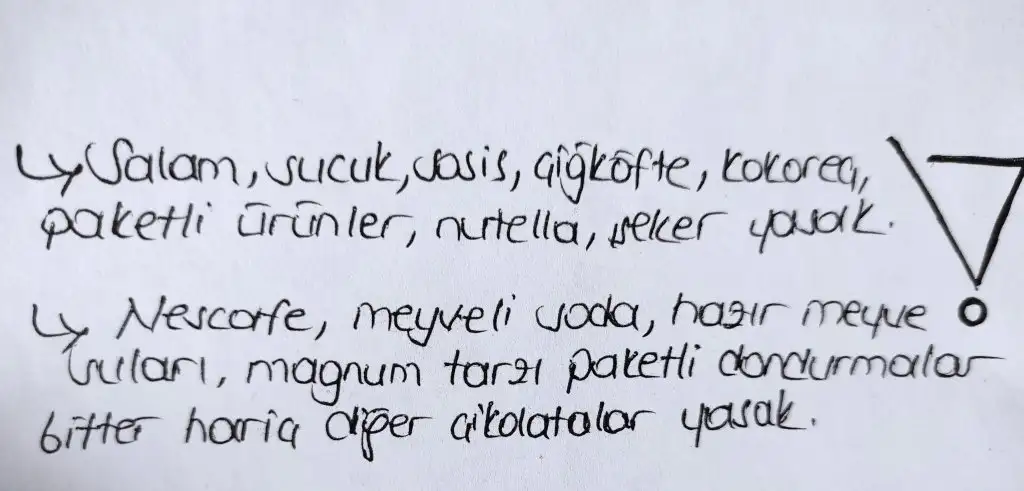 ↳ Salam, sucuk, sosis, çiğköfte, kokoreç,
paketli ürünler, nutella, şeker yasak.
↳ Nescafe, meyveli soda, hazır meyve
suları, magnum tarzı paketli dondurmalar
bitter hariç diğer çikolatalar yasak.